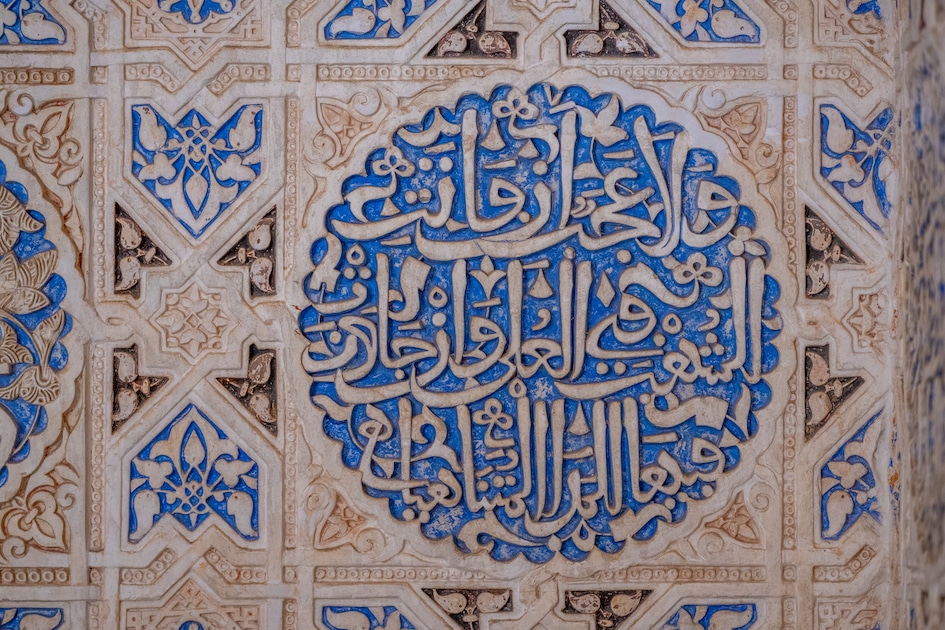 ولا عجب ان فاتت
الشهب في العلى وان جاوزت
فيها المدى المتناهيا